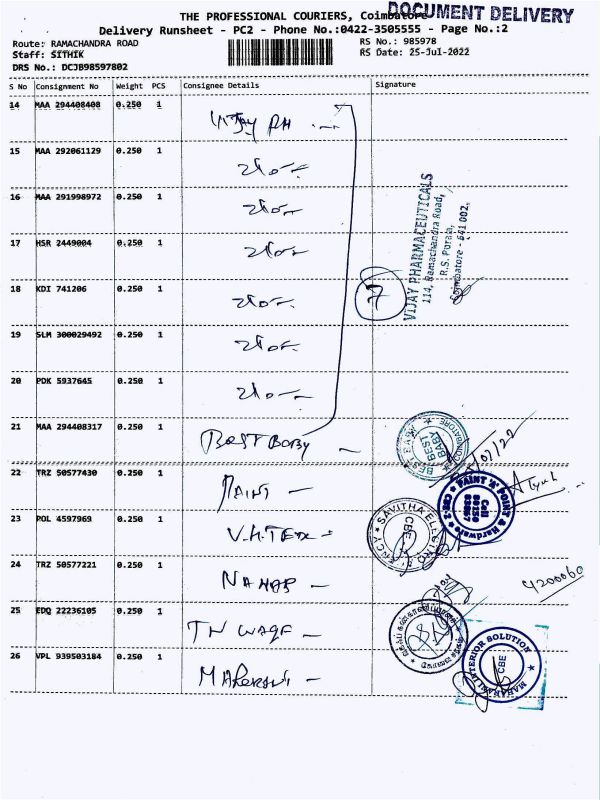 DOCUMENT DELIVERY
THE PROFESSIONAL COURIERS, Coimbatore
Delivery Runsheet - PC2 - Phone No.:0422-3505555 - Page No.:2
Route: RAMACHANDRA ROAD
RS No.: 985978
Staff: SITHIK
RS Date: 25-Jul-2022
DRS No.: DCJB98597802
S No Consignment No Weight PCS Consignee Details Signature
14 MAA 294408408 0.250 1
15 MAA 292061129 0.250 1
16 MAA 291998972 0.250 1
17 HSR 2449004 0.250 1
18 KDI 741206 0.250 1
19 SLM 300029492 0.250 1
20 PDK 5937645 0.250 1
21 MAA 294408317 0.250 1 BEST BABY
22 TRZ 50577430 0.250 1 PAINT
23 POL 4597969 0.250 1 V.H.TEX
24 TRZ 50577221 0.250 1 NAHAR
25 EDQ 22236105 0.250 1 TN WAQF
26 VPL 939503184 0.250 1
7
VIJAY PHARMACEUTICALS
114, Ramachandra Road,
R.S. Puram,
Coimbatore - 641 002.
BEST BABY
COIMBATORE
BEST
BABY
PAINT 'N' POINT
& Hardware
CBE-2
Cell
SAVITHA
CBE
4200060
MAHARANI INTERIOR SOLUTION
CBE